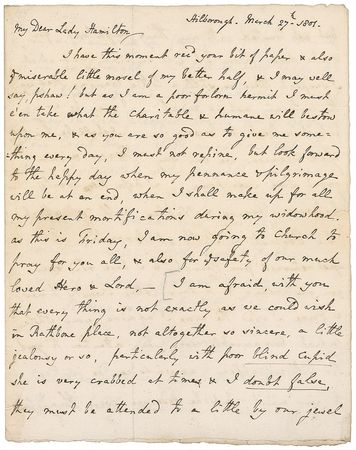 Hilborough. March 27th. 1801.
My Dear Lady Hamilton
I have this moment recd your bit of paper & also
ye miserable little morsel of my better half, & I may well
say, pshaw! but as I am a poor forlorn hermit I must
e'en take what the Charitable & humane will bestow
upon me, & as you are so good as to give me some-
thing every day, I must not repine, but look forward
to the happy day when my pennance & pilgrimage
will be at an end, when I shall make up for all
my present mortifications during my widowhood.
as this is Friday, I am now going to Church to
pray for you all & also for ye safety of our much
loved Hero & Lord, — I am afraid, with you
that every thing is not exactly, as we could wish
in Rathbone place, not altogether so sincere, a little
jealousy or so, particularly with poor blind Cupid
she is very crabbed at times & I doubt false,
they must be attended to a little by our jewel